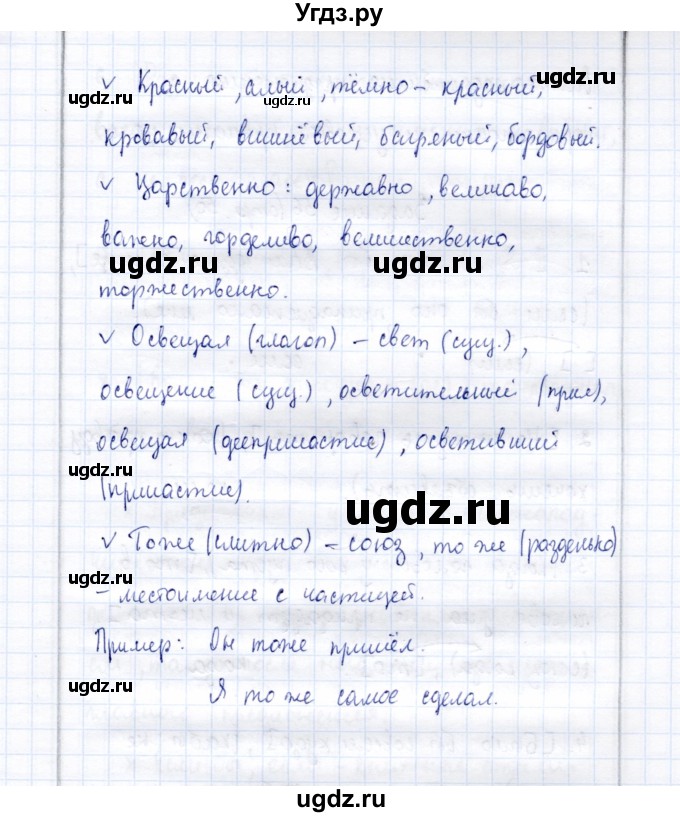 Угдз.ру
✓ Красный, алый, тёмно-красный,
ugdz.ru ugdz.ru
кровавый, вишнёвый, багряный, бордовый.
✓ Царственно: державно, величаво,
ugdz.ru
важно, горделиво, величественно,
ugdz.ru ugdz.ru
торжественно.
✓ Освещая (глагол) – свет (сущ.),
освещение (сущ.), осветительный (прил),
освещая (деепричастие), осветивший
ugdz.ru
(причастие).
ugdz.ru
✓ Тоже (слитно) – союз, то же (раздельно)
– местоимение с частицей.
Пример: Он тоже пришёл.
ugdz.ru
Я то же самое сделал.
ugdz.ru